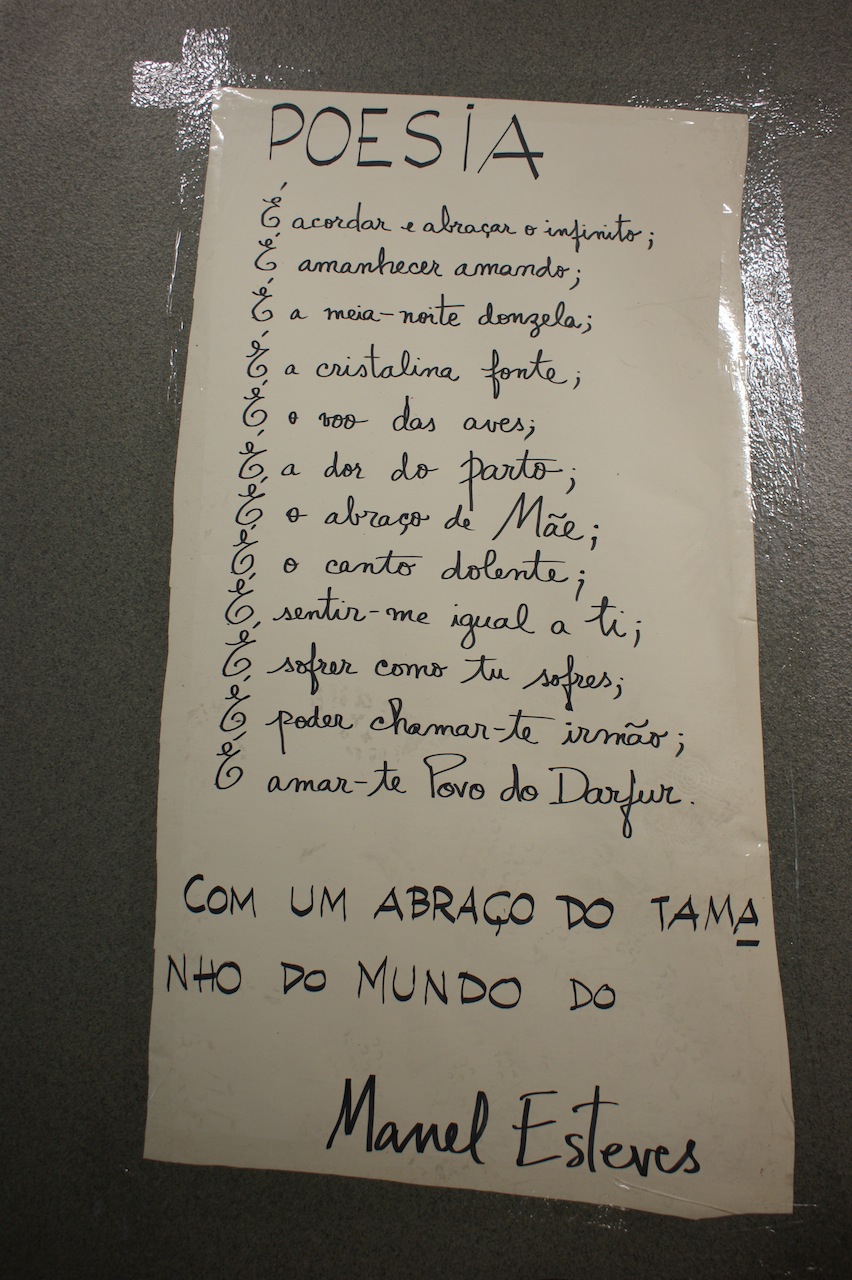 POESIA
É acordar e abraçar o infinito;
É amanhecer amando;
É a meia-noite donzela;
É a cristalina fonte;
É o voo das aves;
É a dor do parto;
É o abraço de Mãe;
É o canto dolente;
É sentir-me igual a ti;
É sofrer como tu sofres;
É poder chamar-te irmão;
É amar-te Povo do Darfur.
COM UM ABRAÇO DO TAMA
NHO DO MUNDO DO
Manel Esteves